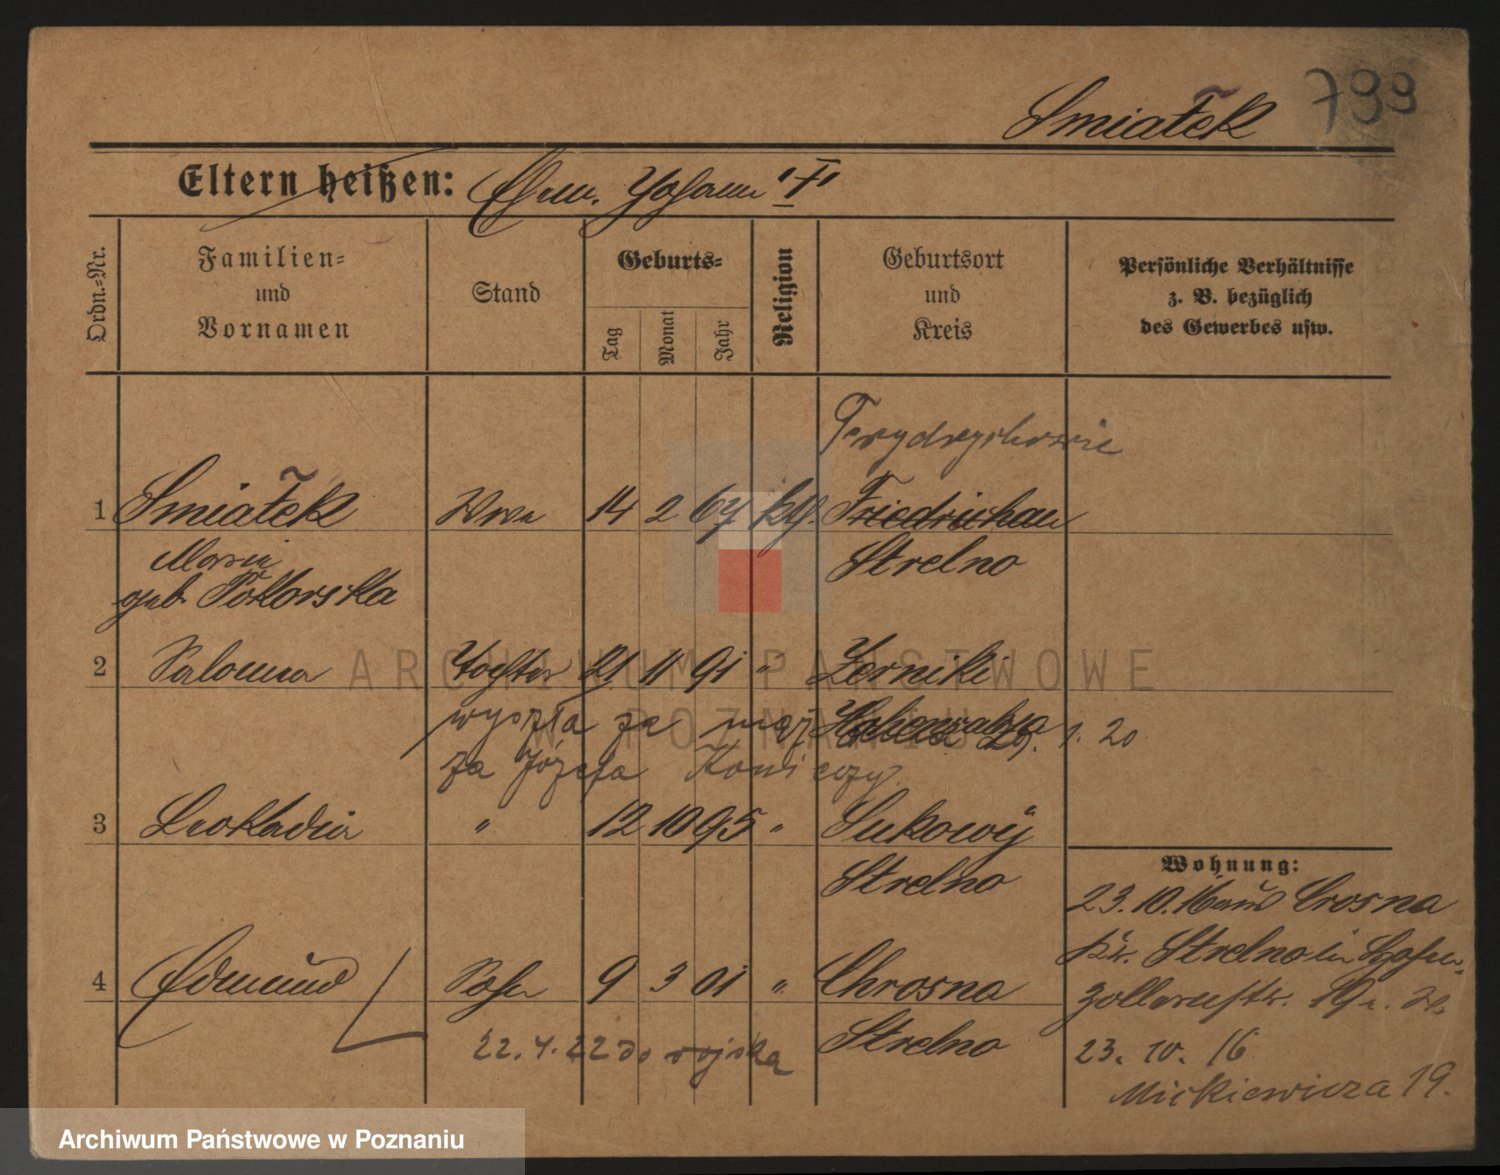 Smiatek 799
Eltern heißen: Ehem. Johann
Ordn.-Nr.
Familien-
und
Vornamen
Stand
Geburts-
Tag
Monat
Jahr
Religion
Geburtsort
und
Kreis
Persönliche Verhältnisse
z. B. bezüglich
des Gewerbes usw.
Frydrychowie
1 Smiatek Wwe 14 2 67 kg. Friedrichau
Maria
Strelno
geb. Pokorska
2 Salomea Tochter 21 11 91 " Zerniki
wyszła za mąż 1. 20
za Józefa
3 Leokadia " 12 10 95 " Sukowÿ
Strelno
Wohnung:
23.10.16 aus Crosna
Kr. Strelno in Hohen-
4 Edmund Sohn 9 3 01 " Chrosna
zollernstr. 19
Strelno
22.4.22 do wojska
23. 10. 16
Mickiewicza 19.
ARCHIWUM PAŃSTWOWE
W POZNANIU
Archiwum Państwowe w Poznaniu